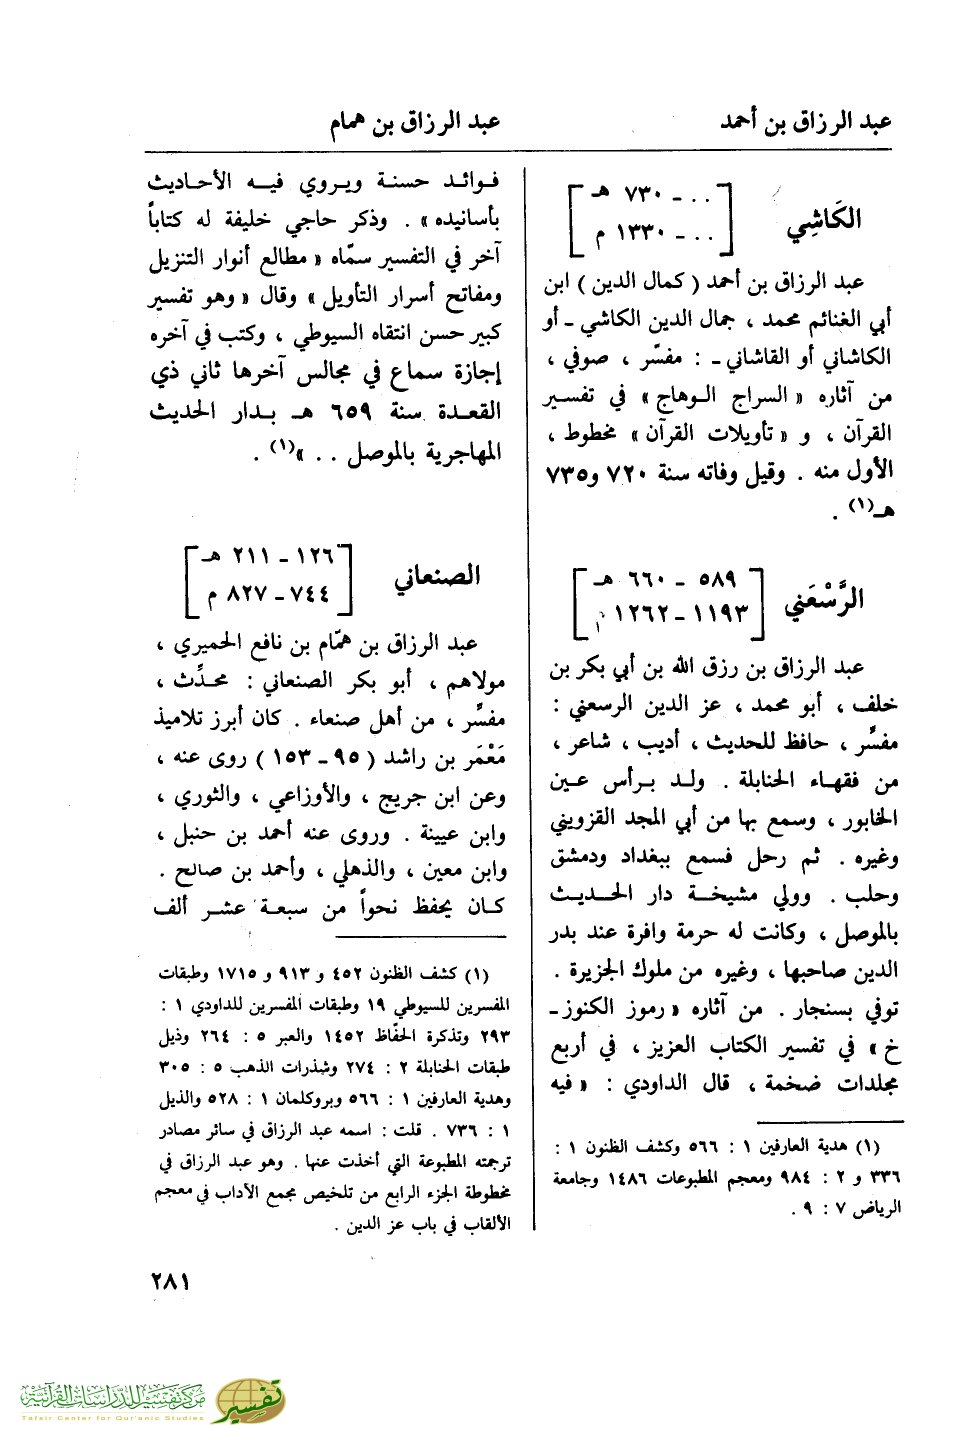 عبد الرزاق بن أحمد
عبد الرزاق بن همام
الكَاشِي
[ .. ـ ٧٣٠ هـ
.. ـ ١٣٣٠ م ]
عبد الرزاق بن أحمد ( كمال الدين ) ابن
أبي الغنائم محمد ، جمال الدين الكاشي ـ أو
الكاشاني أو القاشاني ـ : مفسّر ، صوفي ،
من آثاره « السراج الوهاج » في تفسير
القرآن ، و « تأويلات القرآن » مخطوط ،
الأول منه . وقيل وفاته سنة ٧٢٠ و٧٣٥
هـ(١) .
الرَّسْعَني
[ ٥٨٩ ـ ٦٦٠ هـ
١١٩٣ ـ ١٢٦٢ م ]
عبد الرزاق بن رزق الله بن أبي بكر بن
خلف ، أبو محمد ، عز الدين الرسعني :
مفسِّر ، حافظ للحديث ، أديب ، شاعر ،
من فقهاء الحنابلة . ولد برأس عين
الخابور ، وسمع بها من أبي المجد القزويني
وغيره . ثم رحل فسمع ببغداد ودمشق
وحلب . وولي مشيخة دار الحديث
بالموصل ، وكانت له حرمة وافرة عند بدر
الدين صاحبها ، وغيره من ملوك الجزيرة .
توفي بسنجار . من آثاره « رموز الكنوز ـ
خ » في تفسير الكتاب العزيز ، في أربع
مجلدات ضخمة ، قال الداودي : « فيه
(١) هدية العارفين ١ : ٥٦٦ وكشف الظنون ١ :
٣٣٦ و ٢ : ٩٨٤ ومعجم المطبوعات ١٤٨٦ وجامعة
الرياض ٧ : ٩ .
فوائد حسنة ويروي فيه الأحاديث
بأسانيده » . وذكر حاجي خليفة له كتاباً
آخر في التفسير سمّاه « مطالع أنوار التنزيل
ومفاتح أسرار التأويل » وقال « وهو تفسير
كبير حسن انتقاه السيوطي ، وكتب في آخره
إجازة سماع في مجالس آخرها ثاني ذي
القعدة سنة ٦٥٩ هـ بدار الحديث
المهاجرية بالموصل .. »(١) .
الصنعاني
[ ١٢٦ ـ ٢١١ هـ
٧٤٤ ـ ٨٢٧ م ]
عبد الرزاق بن همّام بن نافع الحميري ،
مولاهم ، أبو بكر الصنعاني : محدِّث ،
مفسِّر ، من أهل صنعاء . كان أبرز تلاميذ
مَعْمَر بن راشد ( ٩٥ ـ ١٥٣ ) روى عنه ،
وعن ابن جريج ، والأوزاعي ، والثوري ،
وابن عيينة . وروى عنه أحمد بن حنبل ،
وابن معين ، والذهلي ، وأحمد بن صالح .
كان يحفظ نحواً من سبعة عشر ألف
(١) كشف الظنون ٤٥٢ و ٩١٣ و ١٧١٥ وطبقات
المفسرين للسيوطي ١٩ وطبقات المفسرين للداودي ١ :
٢٩٣ وتذكرة الحفّاظ ١٤٥٢ والعبر ٥ : ٢٦٤ وذيل
طبقات الحنابلة ٢ : ٢٧٤ وشذرات الذهب ٥ : ٣٠٥
وهدية العارفين ١ : ٥٦٦ وبروكلمان ١ : ٥٢٨ والذيل
١ : ٧٣٦ . قلت : اسمه عبد الرزاق في سائر مصادر
ترجمته المطبوعة التي أخذت عنها . وهو عبد الرزاق في
مخطوطة الجزء الرابع من تلخيص مجمع الآداب في معجم
الألقاب في باب عز الدين .
٢٨١
مركز تفسير للدراسات القرآنية
Tafsir Center for Qur'anic Studies
تفسير